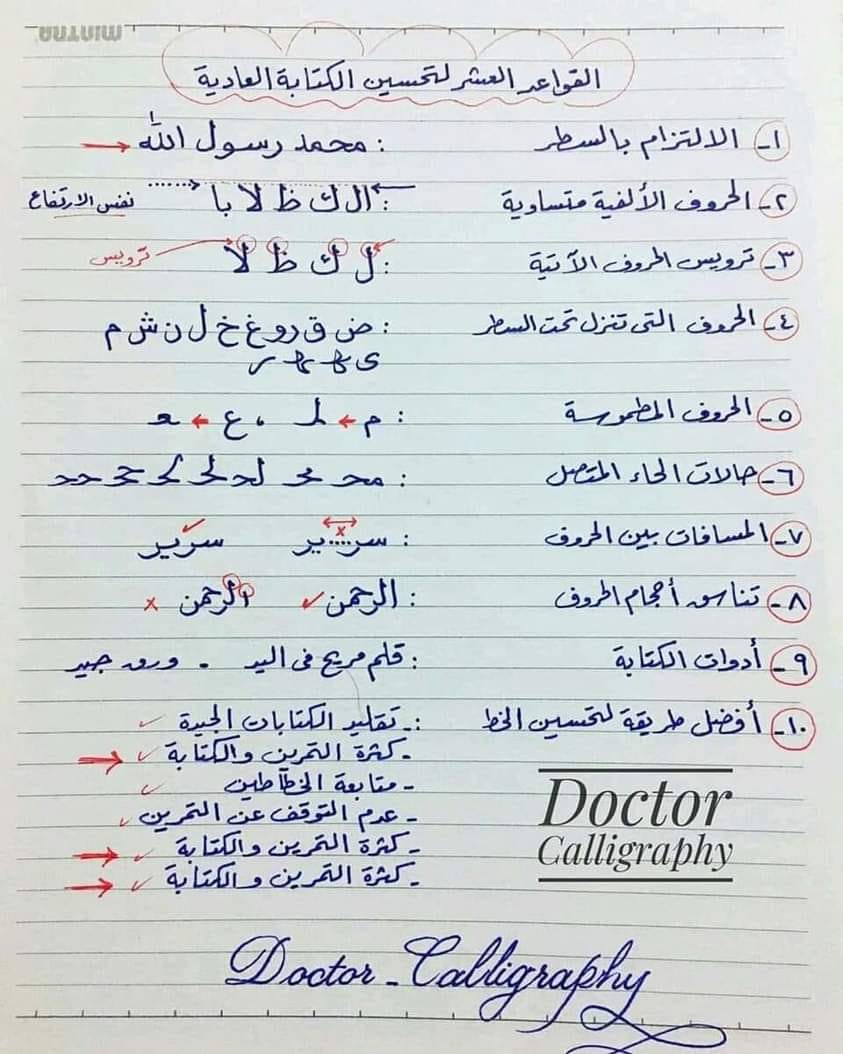 MINTRA
القواعد العشر لتحسين الكتابة العادية
١- الالتزام بالسطر : محمد رسول الله
٢- الحروف الألفية متساوية : ال ك ظ لا با نفس الارتفاع
٣- ترويس الحروف الآتية : ل ك ظ لا ترويس
٤- الحروف التى تنزل تحت السطر : ض ق ر و غ خ ل ن ش م
ى
٥- الحروف المطموسة : م
٦- حالات الحاء المتصل :
٧- المسافات بين الحروف : سرير x سرير
٨- تناسق أحجام الحروف : الرحمن ✓ الرحمن x
٩- أدوات الكتابة : قلم مريح فى اليد . ورق جيد
١٠- أفضل طريقة لتحسين الخط :- تقليد الكتابات الجيدة ✓
- كثرة التمرين والكتابة ✓
- متابعة الخطاطين ✓
- عدم التوقف عن التمرين ✓
- كثرة التمرين والكتابة ✓
- كثرة التمرين والكتابة ✓
Doctor
Calligraphy
Doctor - Calligraphy